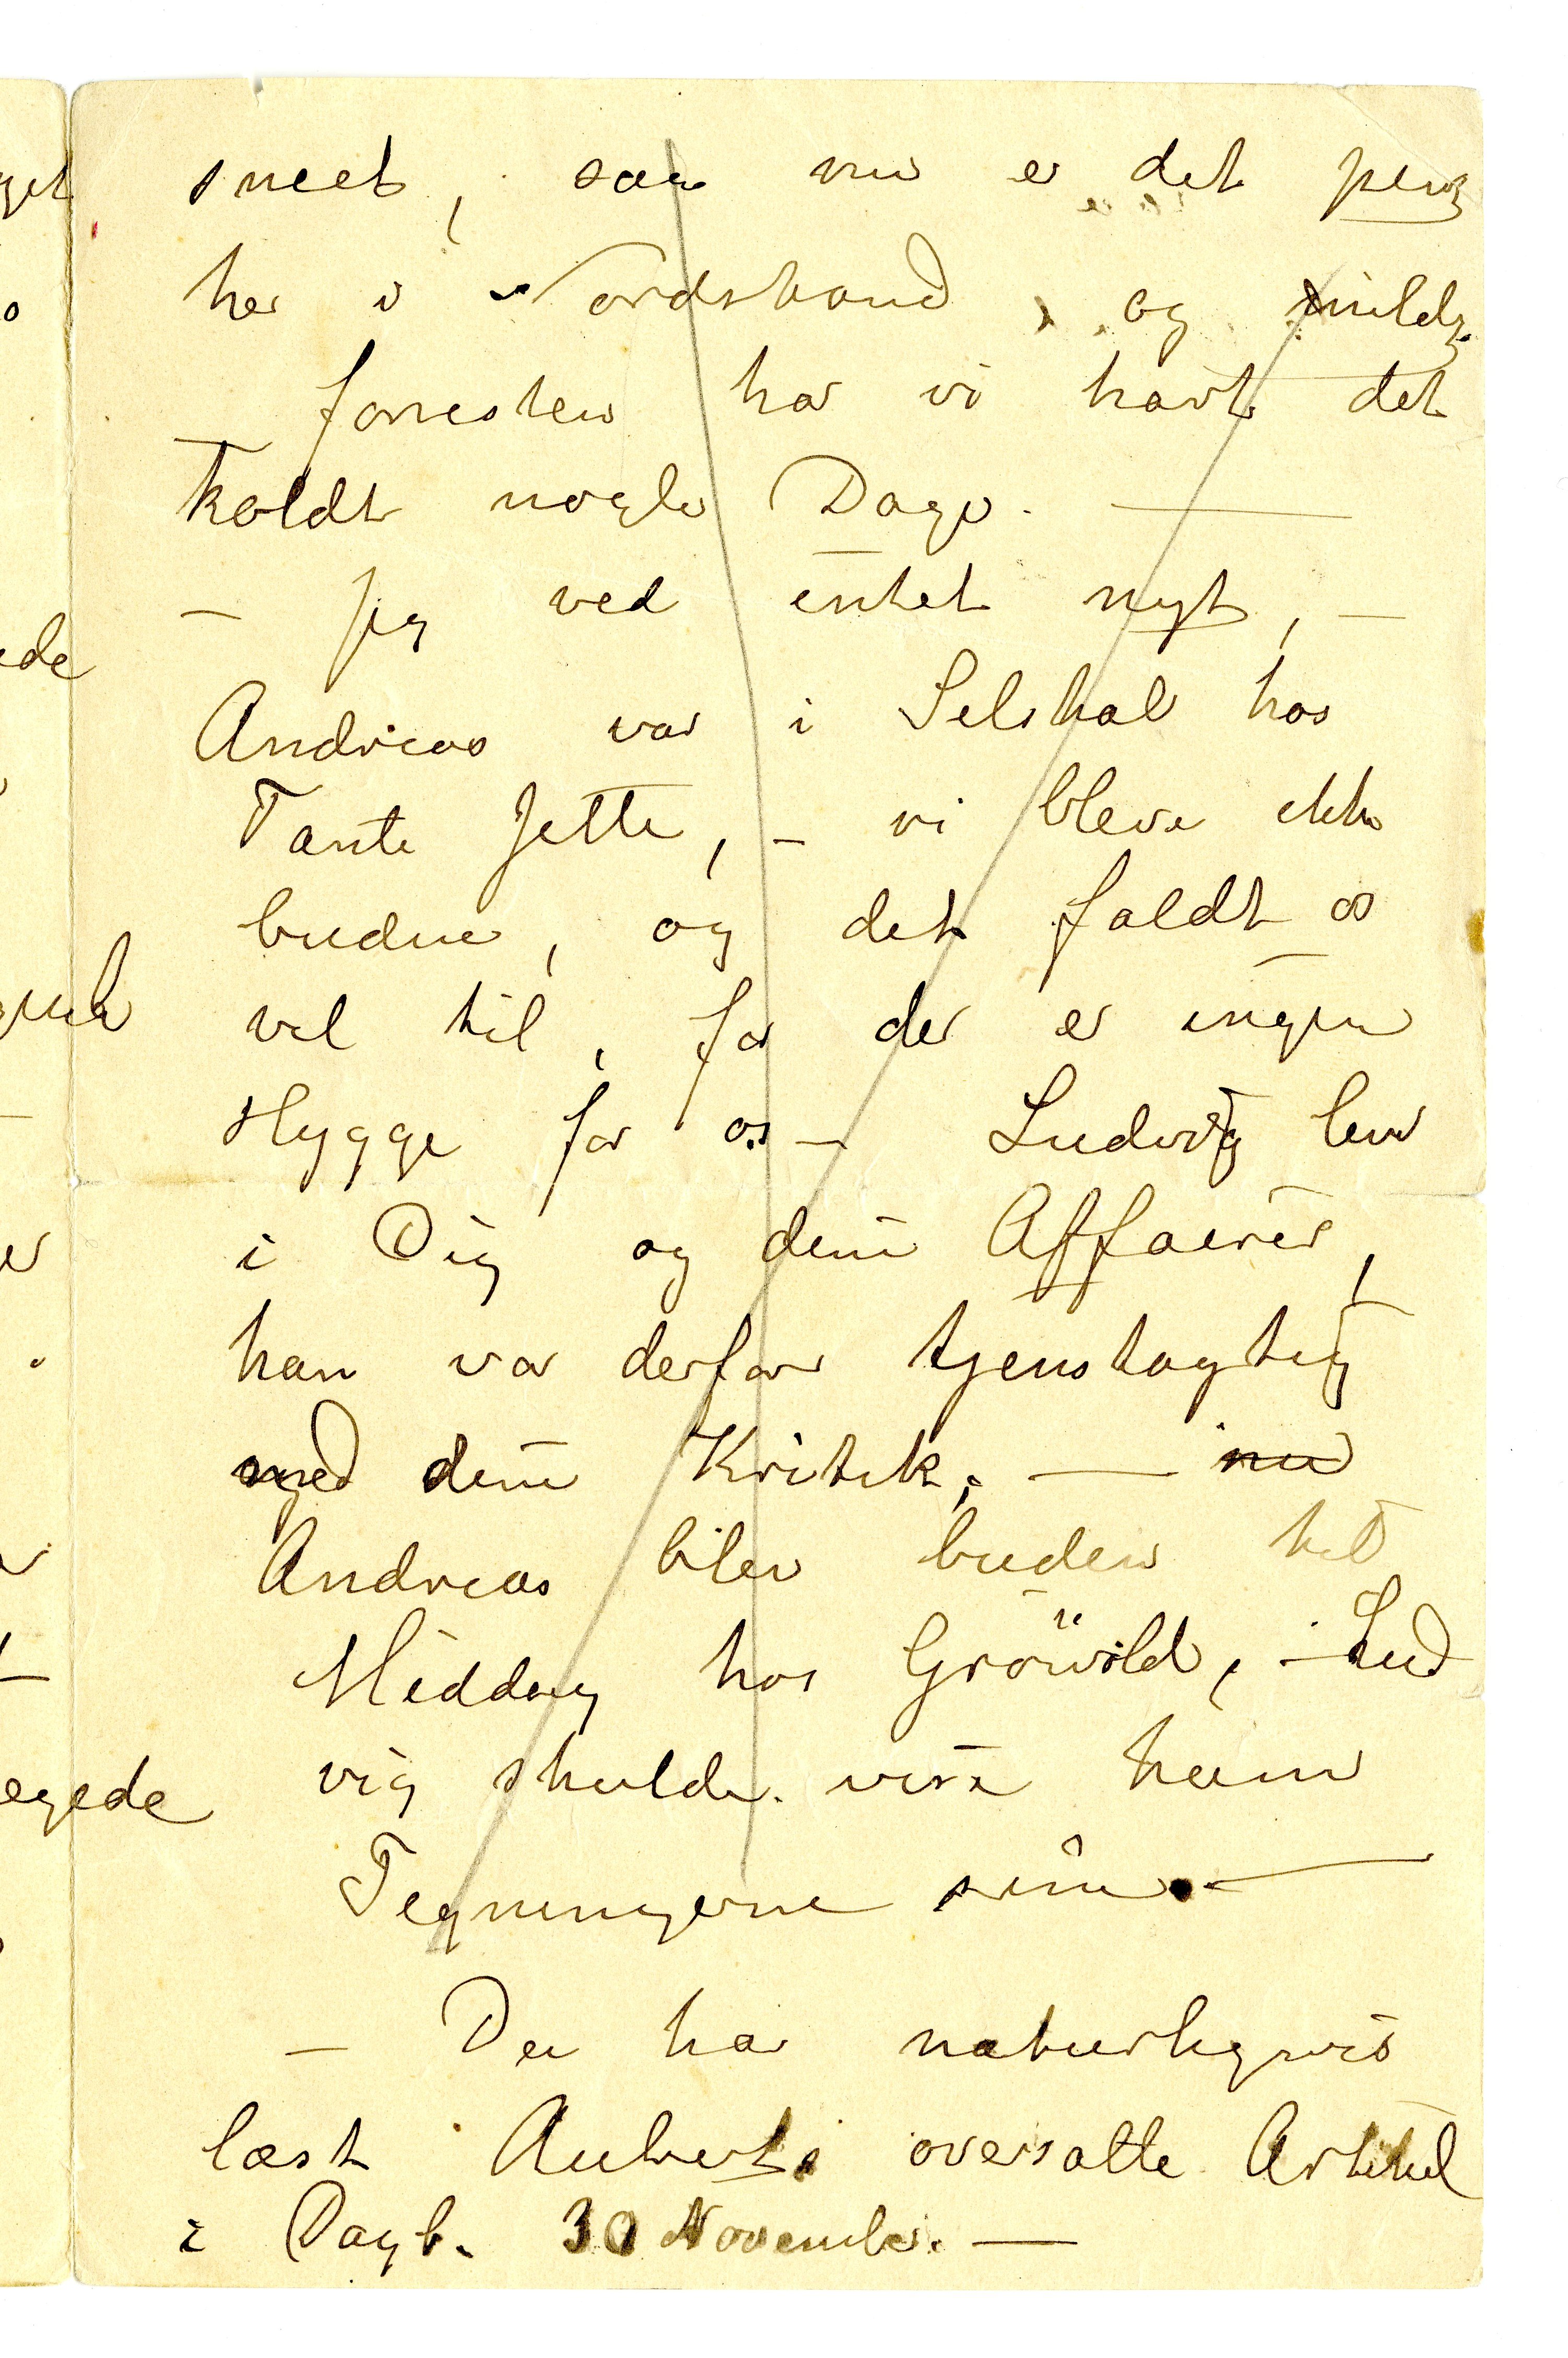 sneet, saa nu er det pent
her i Nordstrand, og mildt.
forresten har vi havt det
koldt nogle Dage. —
— Jeg ved intet nyt, —
Andreas var i Selskab hos
Tante Jette, – vi bleve ikke
budne, og det faldt os
vel til, for der er ingen
Hygge for os — Ludvig lever
i Dig og dine Affairer,
han var derfor tjenstagtig
med dine Kritik; — nu
Andreas blev buden til
Middag hos Grönvold, – Lud
vig skulde vise ham
Tegningerne sine. —
— Du har naturligvis
læst Auberts oversatte Artikel
i Dagb. 30 November. —